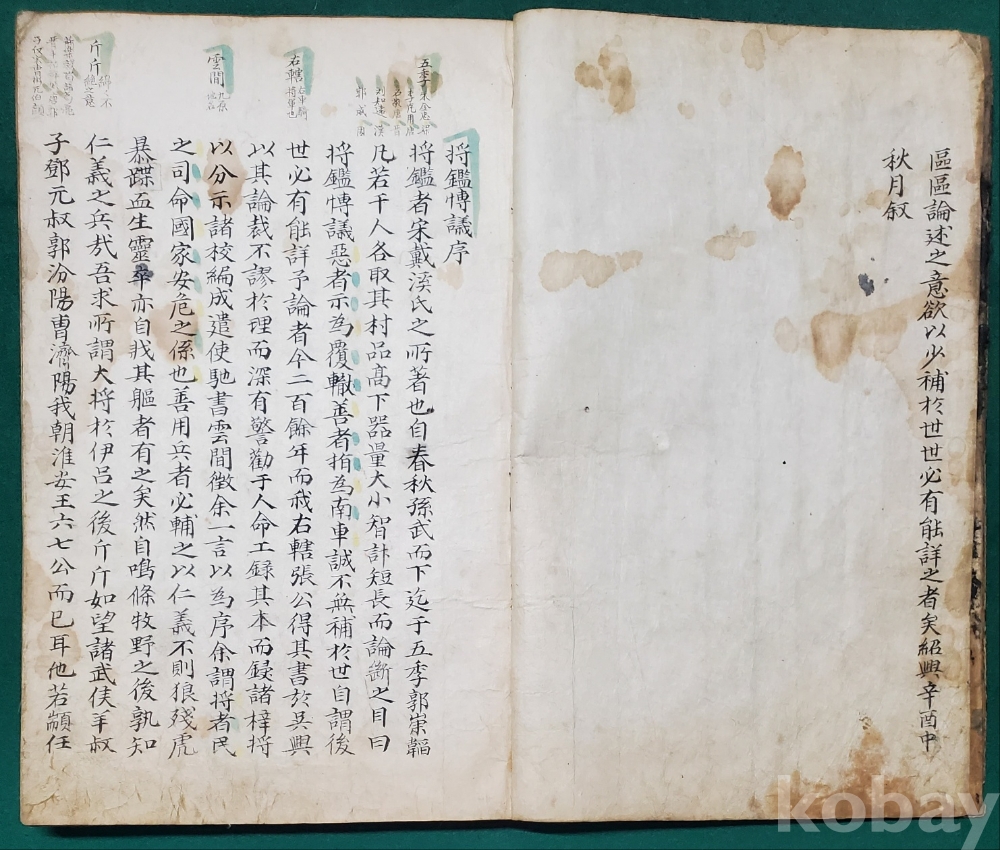 區區論述之意欲以少補於世世必有能詳之者矣紹興辛酉中
秋月叙
將鑑愽議序
將鑑者宋戴溪氏之所著也自春秋孫武而下迄于五季郭崇韜
凡若干人各取其村品高下器量大小智計短長而論斷之目曰
將鑑愽議惡者示為覆轍善者指為南車誠不無補於世自謂後
世必有能詳予論者今二百餘年而我右轄張公得其書於吳興
以其論裁不謬於理而深有警勸于人命工録其本而鋟諸梓將
以分示諸校編成遣使馳書雲間徵余一言以為序余謂將者民
之司命國家安危之係也善用兵者必輔之以仁義不則狼殘虎
暴蹀血生靈卒亦自戕其軀者有之矣然自鳴條牧野之後孰知
仁義之兵㢤吾求所謂大將於伊呂之後斤斤如望諸武侯羊叔
子鄧元叔郭汾陽曺濟陽我朝淮安王六七公而已耳他若顓任
五季
右轄
雲間
斤斤
kobay